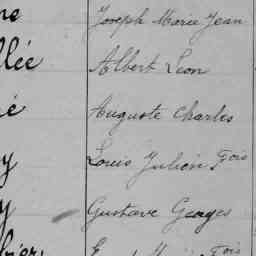 Joseph Marie Jean
llée Albert Léon
Auguste Charles
Louis Julien Fois
Gustave Georges
Marie Fois